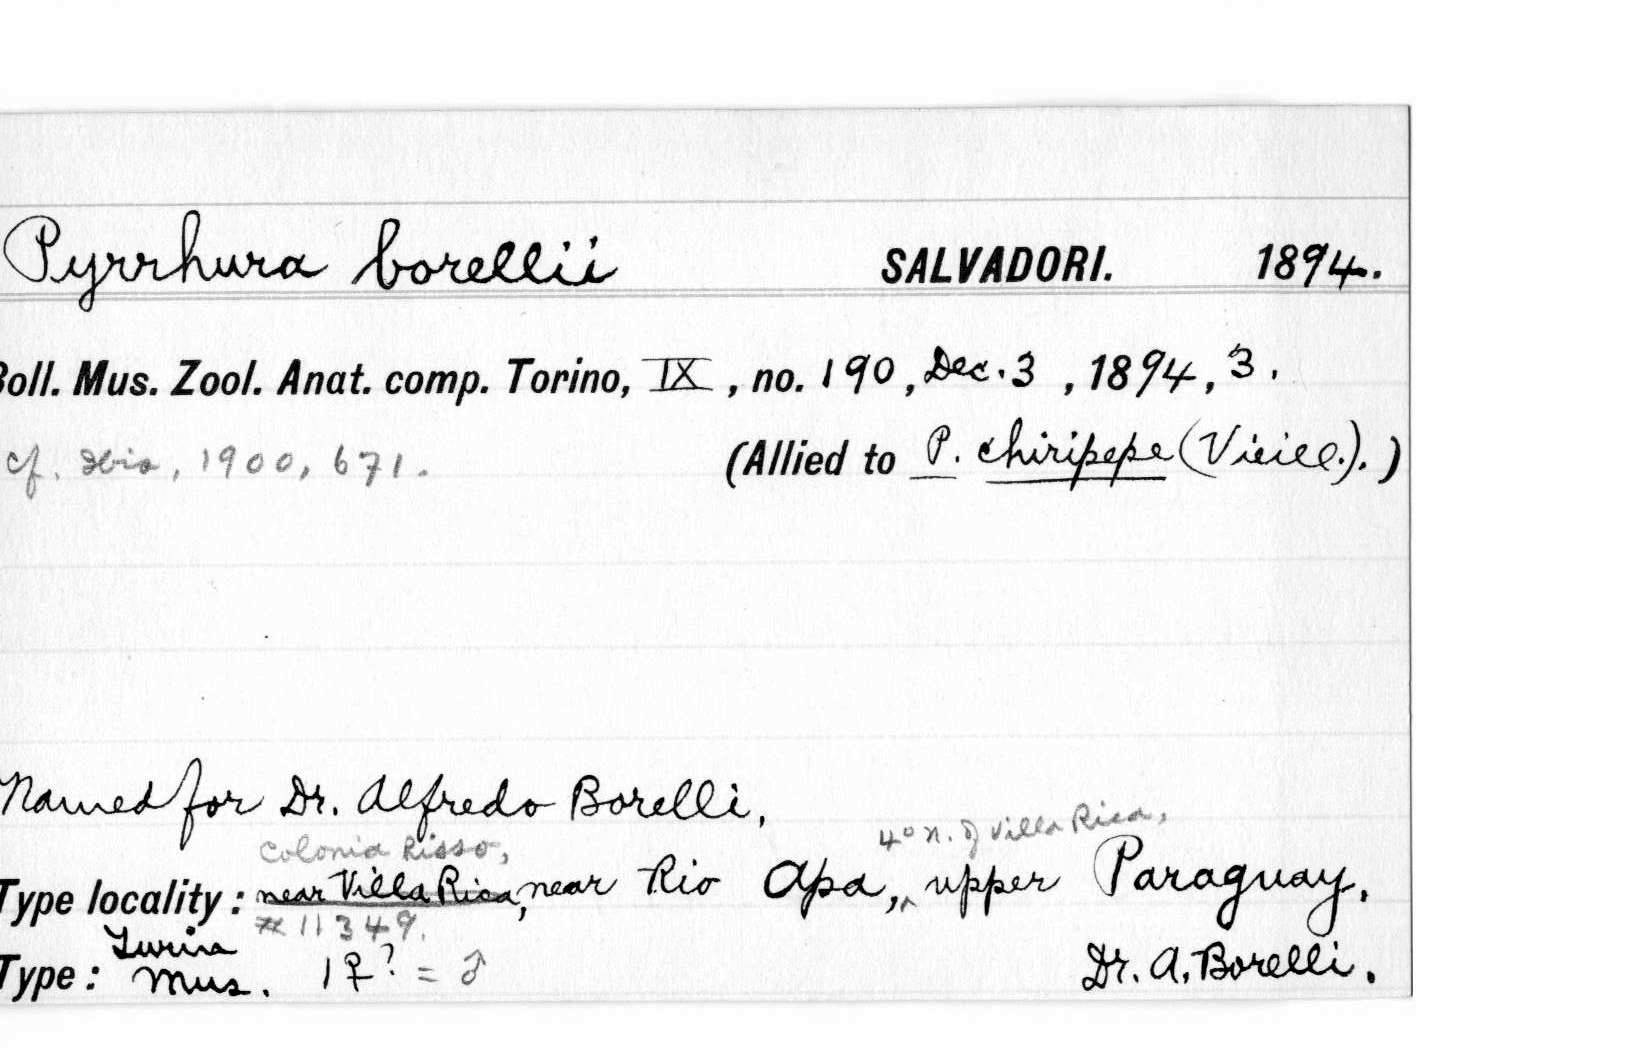 Pyrrhura borellii SALVADORI. 1894.
Boll. Mus. Zool. Anat. comp. Torino, IX, no. 190, Dec. 3, 1894, 3.
cf. Ibis, 1900, 671. (Allied to P. chiripepe (Vieill.).)
Named for Dr. Alfredo Borelli,
Colonia Risso, 4° n. of Villa Rica,
Type locality: near Villa Rica, near Rio Apa, ^ upper Paraguay.
# 11349.
Turin
Type: Mus. 1 ♀? = ♂ Dr. A. Borelli.